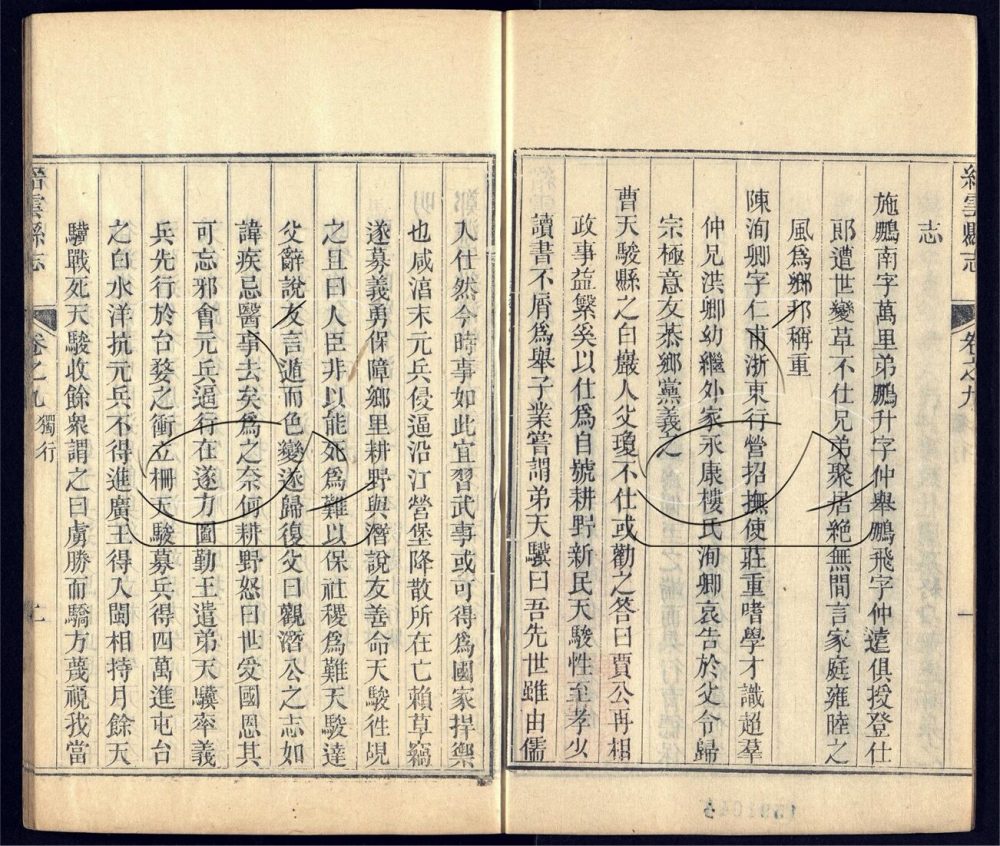 縉雲縣志
卷之九
志
施鵬南字萬里弟鵬升字仲舉鵬飛字仲遠俱授登仕
郎遭世變草不仕兄弟聚居絶無間言家庭雍睦之
風爲鄉邦稱重
陳洵卿字仁甫浙東行營招撫使莊重嗜學才識超羣
仲兄洪卿幼繼外家永康樓氏洵卿哀告於父令歸
宗極意友恭鄉黨義之
曹天駿縣之白巖人父瓊不仕或勸之答曰賈公再相
政事益繁奚以仕爲自號耕野新民天駿性至孝少
讀書不屑爲舉子業嘗謂弟天驥曰吾先世雖由儒
入仕然今時事如此宜習武事或可得爲國家捍禦
也咸淳末元兵侵逼沿江營堡降散所在亡賴草竊
遂募義勇保障鄉里耕野與潛說友善命天駿徃覘
之且曰人臣非以能死爲難以保社稷爲難天駿達
父辭說友言遁而色變遂歸復父曰觀潛公之志如
諱疾忌醫事去矣爲之奈何耕野怒曰世爱國恩其
可忘邪會元兵逼行在遂力圖勤王遣弟天驥率義
兵先行於台婺之衝立柵天駿募兵得四萬進屯台
之白水洋抗元兵不得進廣王得入閩相持月餘天
驥戰死天駿收餘衆謂之曰虜勝而驕方蔑視我當
縉雲縣志
卷之九
獨行